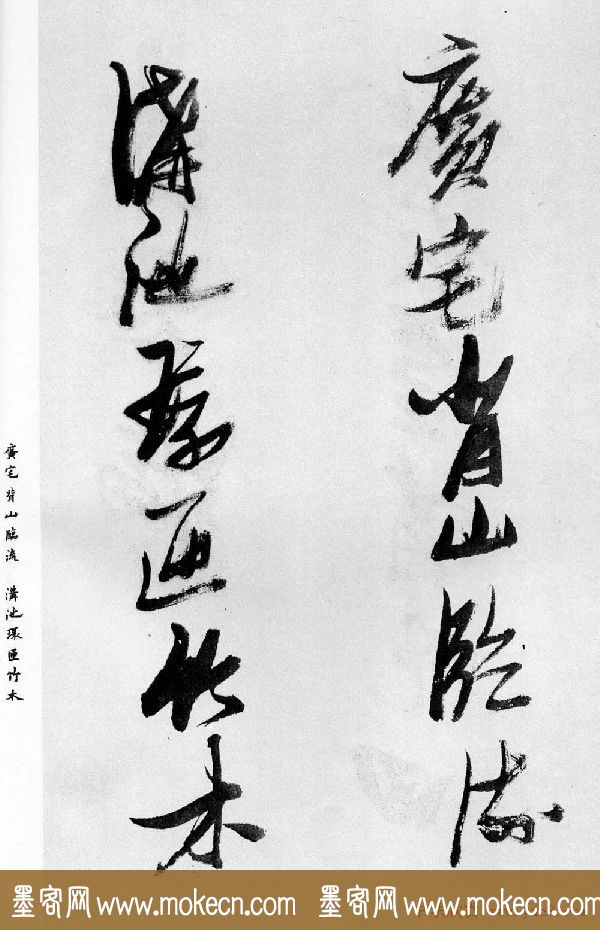 廣宅背山臨流
溝池環匝竹木
廣宅背山臨流 溝池環匝竹木
墨客网 www.mokecn.com 墨客网 www.mokecn.com